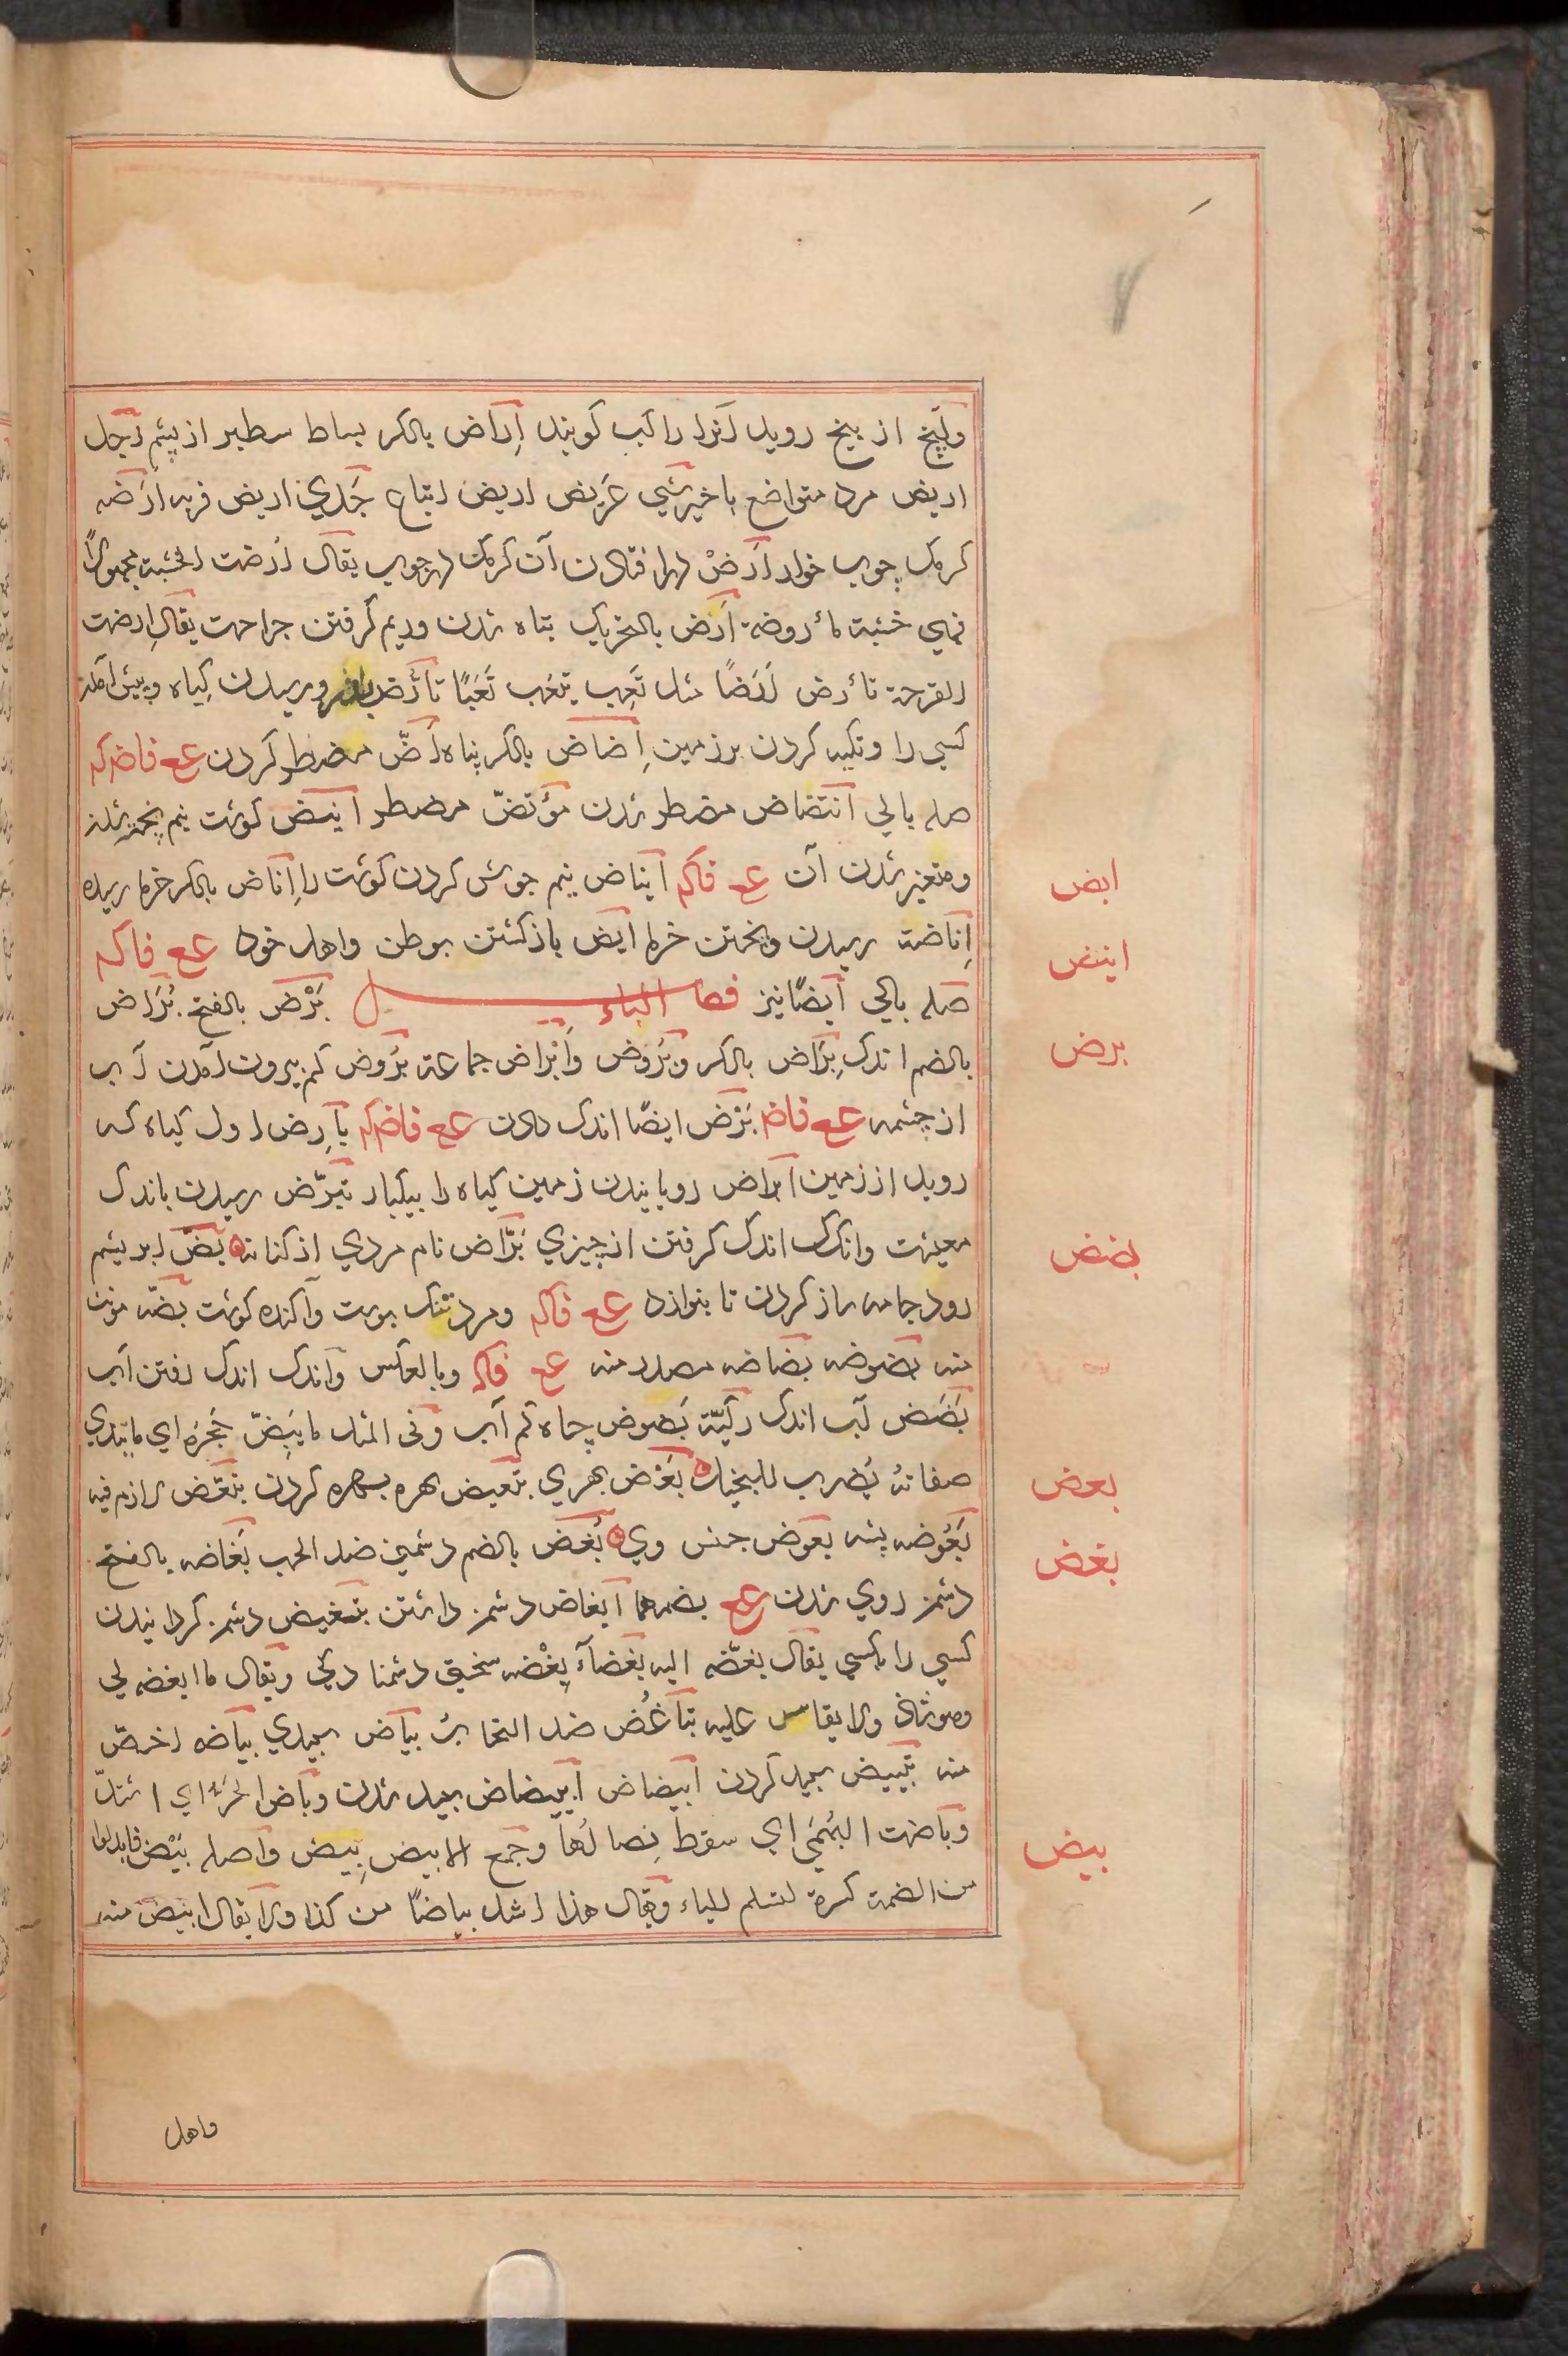 وآنچ از بیخ روید آنرا راکب کویند إراض بالکسر بساط سطبر از پشم رجل
اریض مرد متواضع باخیر شیي عریض اریض اتباع جَدي اریض فربه ارَضه
کرمک چوب خوار أرْض افتادن آن کرمک در چوب یقال اُرضت الخشبة مجهولاً
فهي خشبة مأروضة أرَض بالتحریک تباه شدن وریم کرفتن جراحت یقال اِرضت
القرحة تأرض اَرَضًا مثل تَعِب یتعَب تَعَبًا تأرّض رسیدن کیاه وپیش آمدن
کسي را وتکیه کردن برزمین إضاض بالکسر پناه أضّ مضطر کردن عع فاضکه
صله بالی ائتضاض مضطر شدن مؤتضّ مضطر انیض کوشت نیم پخته شدن
ومتغیر شدن آن عع فاکه ایناض نیم جوش کردن کوشت را إناض بالکسر خرما رسیده
إناضة رسیدن وپختن خرما أیض بازکشتن بوطن واهل خود عع فاکه
صله بالی أیضًا نیز فصل الباء بَرْض بالفتح بُرَاض
بالضم اندک بِرَاض بالکسر وبُرُوض وأبْراض جماعة بُرُوض کم بیرون آمدن آب
از چشمه عع فاضه بَرْض ایضًا اندک دادن عع فاضکه بارِض اول کیاه که
روید از زمین ابراض رویانیدن زمین کیاه را بیکبار تبرّض رسیدن باندک
معیشت واندک اندک کرفتن از چیزي بَرّاض نام مردي از کنانة بَضّ ابریشم
رود جامه ساز کردن تا بنوازد عع فاکه ومرد تنک پوست وآکنده کوشت بضّه مؤنث
منه بضوضه بضاضه مصدر منه عع فاکه وبالعکس واندک اندک رفتن آب
بَضَض آب اندک رکیّة بَضوض چاه کم آب وفی المثل ما یَبِضّ حَجَرُه ای ما تندي
صفاتهُ یُضرب للبخیل بَعْض بهري تبعیض بهره بهره کردن تبعّض لازم فیه
بَعُوضه پشه بعوض جنس وي بُغض بالضم دشمنی ضد الحب بَغاضه بالفتح
دشمن روي شدن عع بضمهما ابغاض دشمن داشتن تبغیض دشمن کردانیدن
کسي را بکسي یقال بغّضه الیه بَغضآء بِغْضه سخت دشمنا دکي ویقال ما ابغضه لي
وهو شاذ ولا یقاس علیه تباغُض ضد التحابّ بیاض سپیدي بیاضه اخصّ
منه تبییض سپید کردن ابیضاض ابییضاض سپید شدن وباض الحرّ اي اشتدّ
وباضت البُهمَی اي سقط نِصالُها وجمع الابیض بِیض واصله بُیْض فابدلوا
من الضمة کسرة لتسلم الیاء ویقال هذا اشد بیاضًا من کذا ولا یقال ابیَض منه
واهل
ابض
اینض
برض
بضض
بعض
بغض
بیض